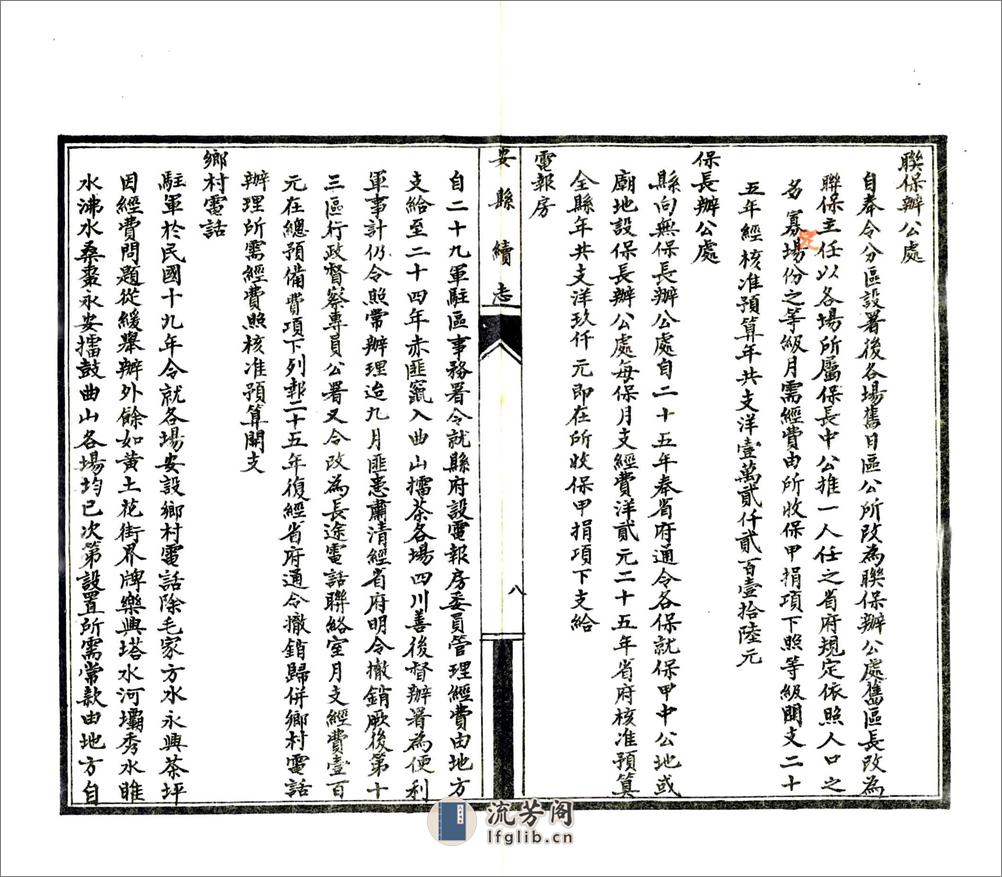 聯保辦公處
自奉令分區設署後各場舊日區公所改為聯保辦公處舊區長改為
聯保主任以各場所屬保長中公推一人任之省府規定依照人口之
多寡場份之等級月需經費由所收保甲捐項下照等級開支二十
五年經核准預算年共支洋壹萬貳仟貳百壹拾陸元
保長辦公處
縣向無保長辦公處自二十五年奉省府通令各保就保甲中公地或
廟地設保長辦公處每保月支經費洋貳元二十五年省府核准預算
全縣年共支洋玖仟元即在所收保甲捐項下支給
電報房
安縣續志
八
自二十九軍駐區事務署令就縣府設電報房委員管理經費由地方
支給至二十四年赤匪竄入曲山擂茶各場四川善後督辦署為便利
軍事計仍令照常辦理迨九月匪患肅清經省府明令撤銷厥後第十
三區行政督察專員公署又令改為長途電話聯絡室月支經費壹百
元在總預備費項下列報二十五年復經省府通令撤銷歸併鄉村電話
辦理所需經費照核准預算開支
鄉村電話
駐軍於民國十九年令就各場安設鄉村電話除毛家方水永興茶坪
因經費問題從緩舉辦外餘如黃土花街界牌樂興塔水河壩秀水睢
水沸水桑棗永安擂鼓曲山各場均已次第設置所需常款由地方自
流芳阁
lfglib.cn